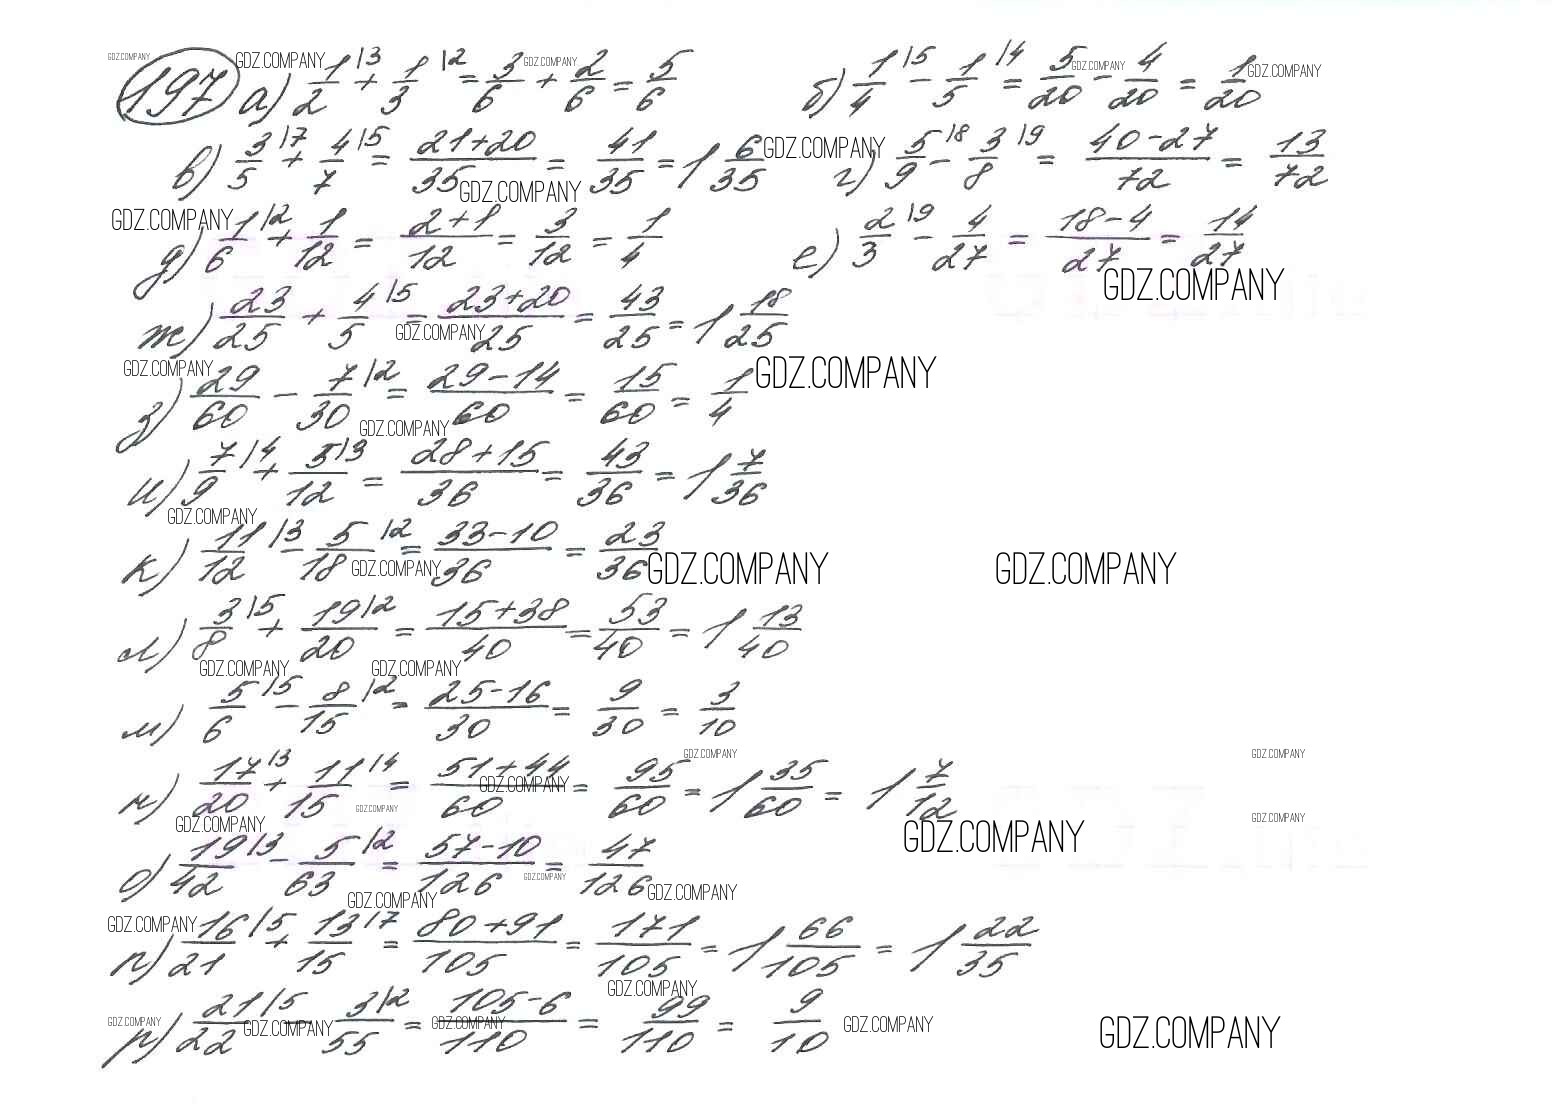 197 а) 1/2|3 + 1/3|2 = 3/6 + 2/6 = 5/6 б) 1/4|5 - 1/5|4 = 5/20 - 4/20 = 1/20
в) 3/5|7 + 4/7|5 = 21+20/35 = 41/35 = 1 6/35 г) 5/9|8 - 3/8|9 = 40-27/72 = 13/72
д) 1/6|2 + 1/12 = 2+1/12 = 3/12 = 1/4 е) 2/3|9 - 4/27 = 18-4/27 = 14/27
ж) 23/25 + 4/5|5 = 23+20/25 = 43/25 = 1 18/25
з) 29/60 - 7/30|2 = 29-14/60 = 15/60 = 1/4
и) 7/9|4 + 5/12|3 = 28+15/36 = 43/36 = 1 7/36
к) 11/12|3 - 5/18|2 = 33-10/36 = 23/36
л) 3/8|5 + 19/20|2 = 15+38/40 = 53/40 = 1 13/40
м) 5/6|5 - 8/15|2 = 25-16/30 = 9/30 = 3/10
н) 17/20|3 + 11/15|4 = 51+44/60 = 95/60 = 1 35/60 = 1 7/12
о) 19/42|3 - 5/63|2 = 57-10/126 = 47/126
п) 16/21|5 + 13/15|7 = 80+91/105 = 171/105 = 1 66/105 = 1 22/35
р) 21/22|5 - 3/55|2 = 105-6/110 = 99/110 = 9/10
GDZ.COMPANY